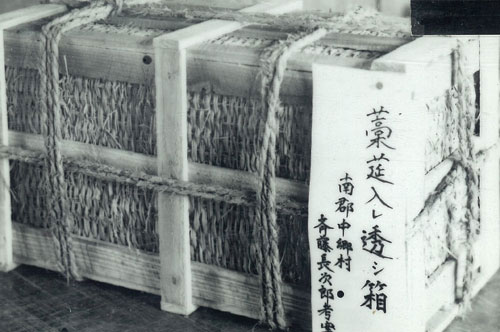 藁莚入レ透シ箱
南郡中郷村
斉藤長次郎考案